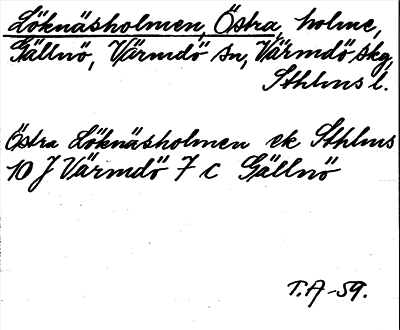 Löknäsholmen, Östra, holme,
Gällnö, Värmdö sn, Värmdö skg,
Sthlms l.
Östra Löknäsholmen ek Sthlms
10 J Värmdö 7 c Gällnö
T.A -59.